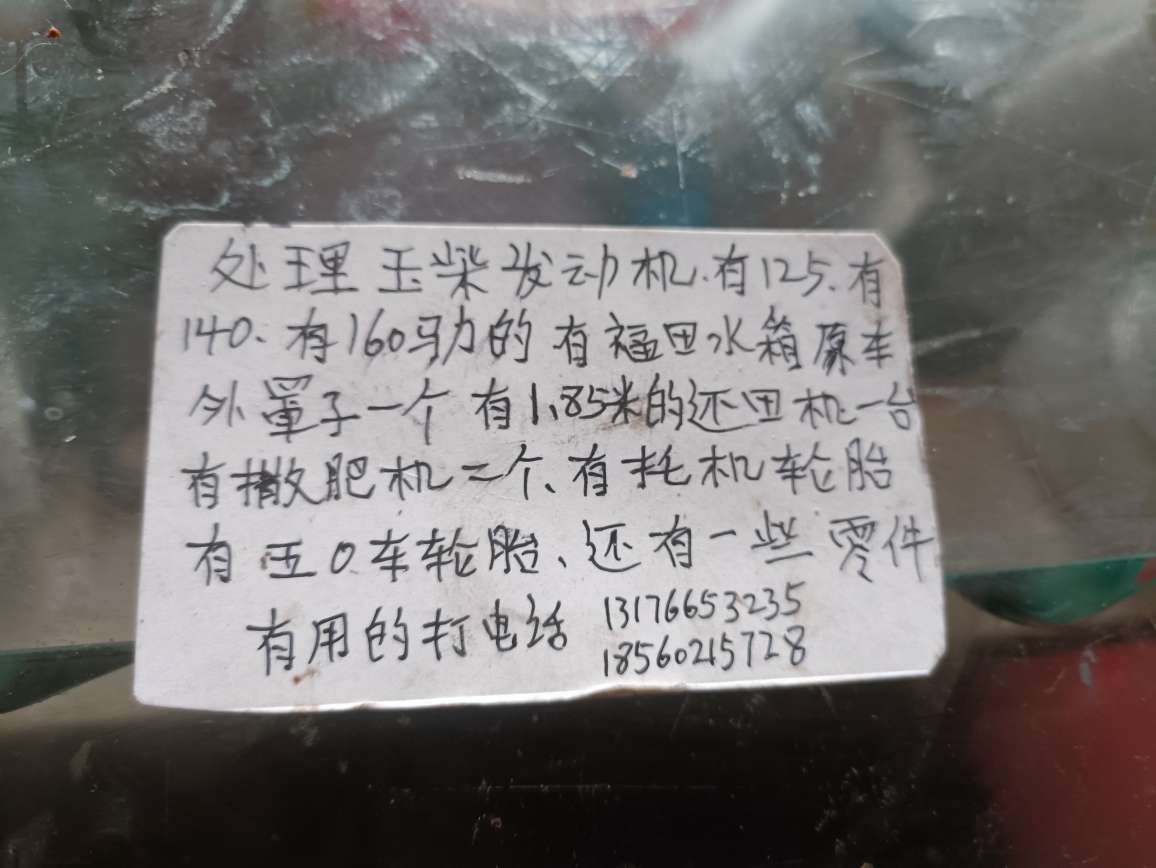 处理玉柴发动机.有125.有
140.有160马力的 有福田水箱原车
外罩子一个 有1.85米的还田机一台
有撒肥机二个、有耗机轮胎
有五0车轮胎、还有一些零件
有用的打电话 13176653235
18560215728